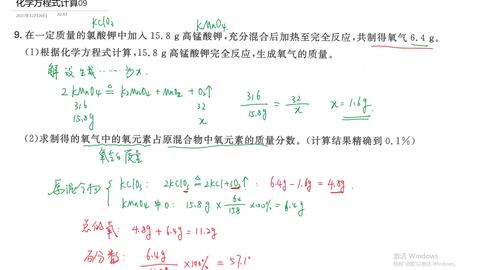 化学方程式计算09
KClO₃
KMnO₄
9. 在一定质量的氯酸钾中加入 15.8 g 高锰酸钾,充分混合后加热至完全反应,共制得氧气 6.4 g。
(1)根据化学方程式计算,15.8 g 高锰酸钾完全反应,生成氧气的质量。
解 设生成 ····· 为x
2KMnO₄ ≜ K₂MnO₄ + MnO₂ + O₂↑
316 32
15.8g x
316/15.8g = 32/x x = 1.6g
(2)求制得的氧气中的氧元素占原混合物中氧元素的质量分数。(计算结果精确到 0.1%)
原混合物
KClO₃: 2KClO₃ ≜ 2KCl+3O₂↑: 6.4g-1.6g = 4.8g
KMnO₄中O: 15.8g × 64/158 ×100% = 6.4g
总的氧: 4.8g + 6.4g = 11.2g
百分数: 6.4g ×100% = 57.1
激活 Windows